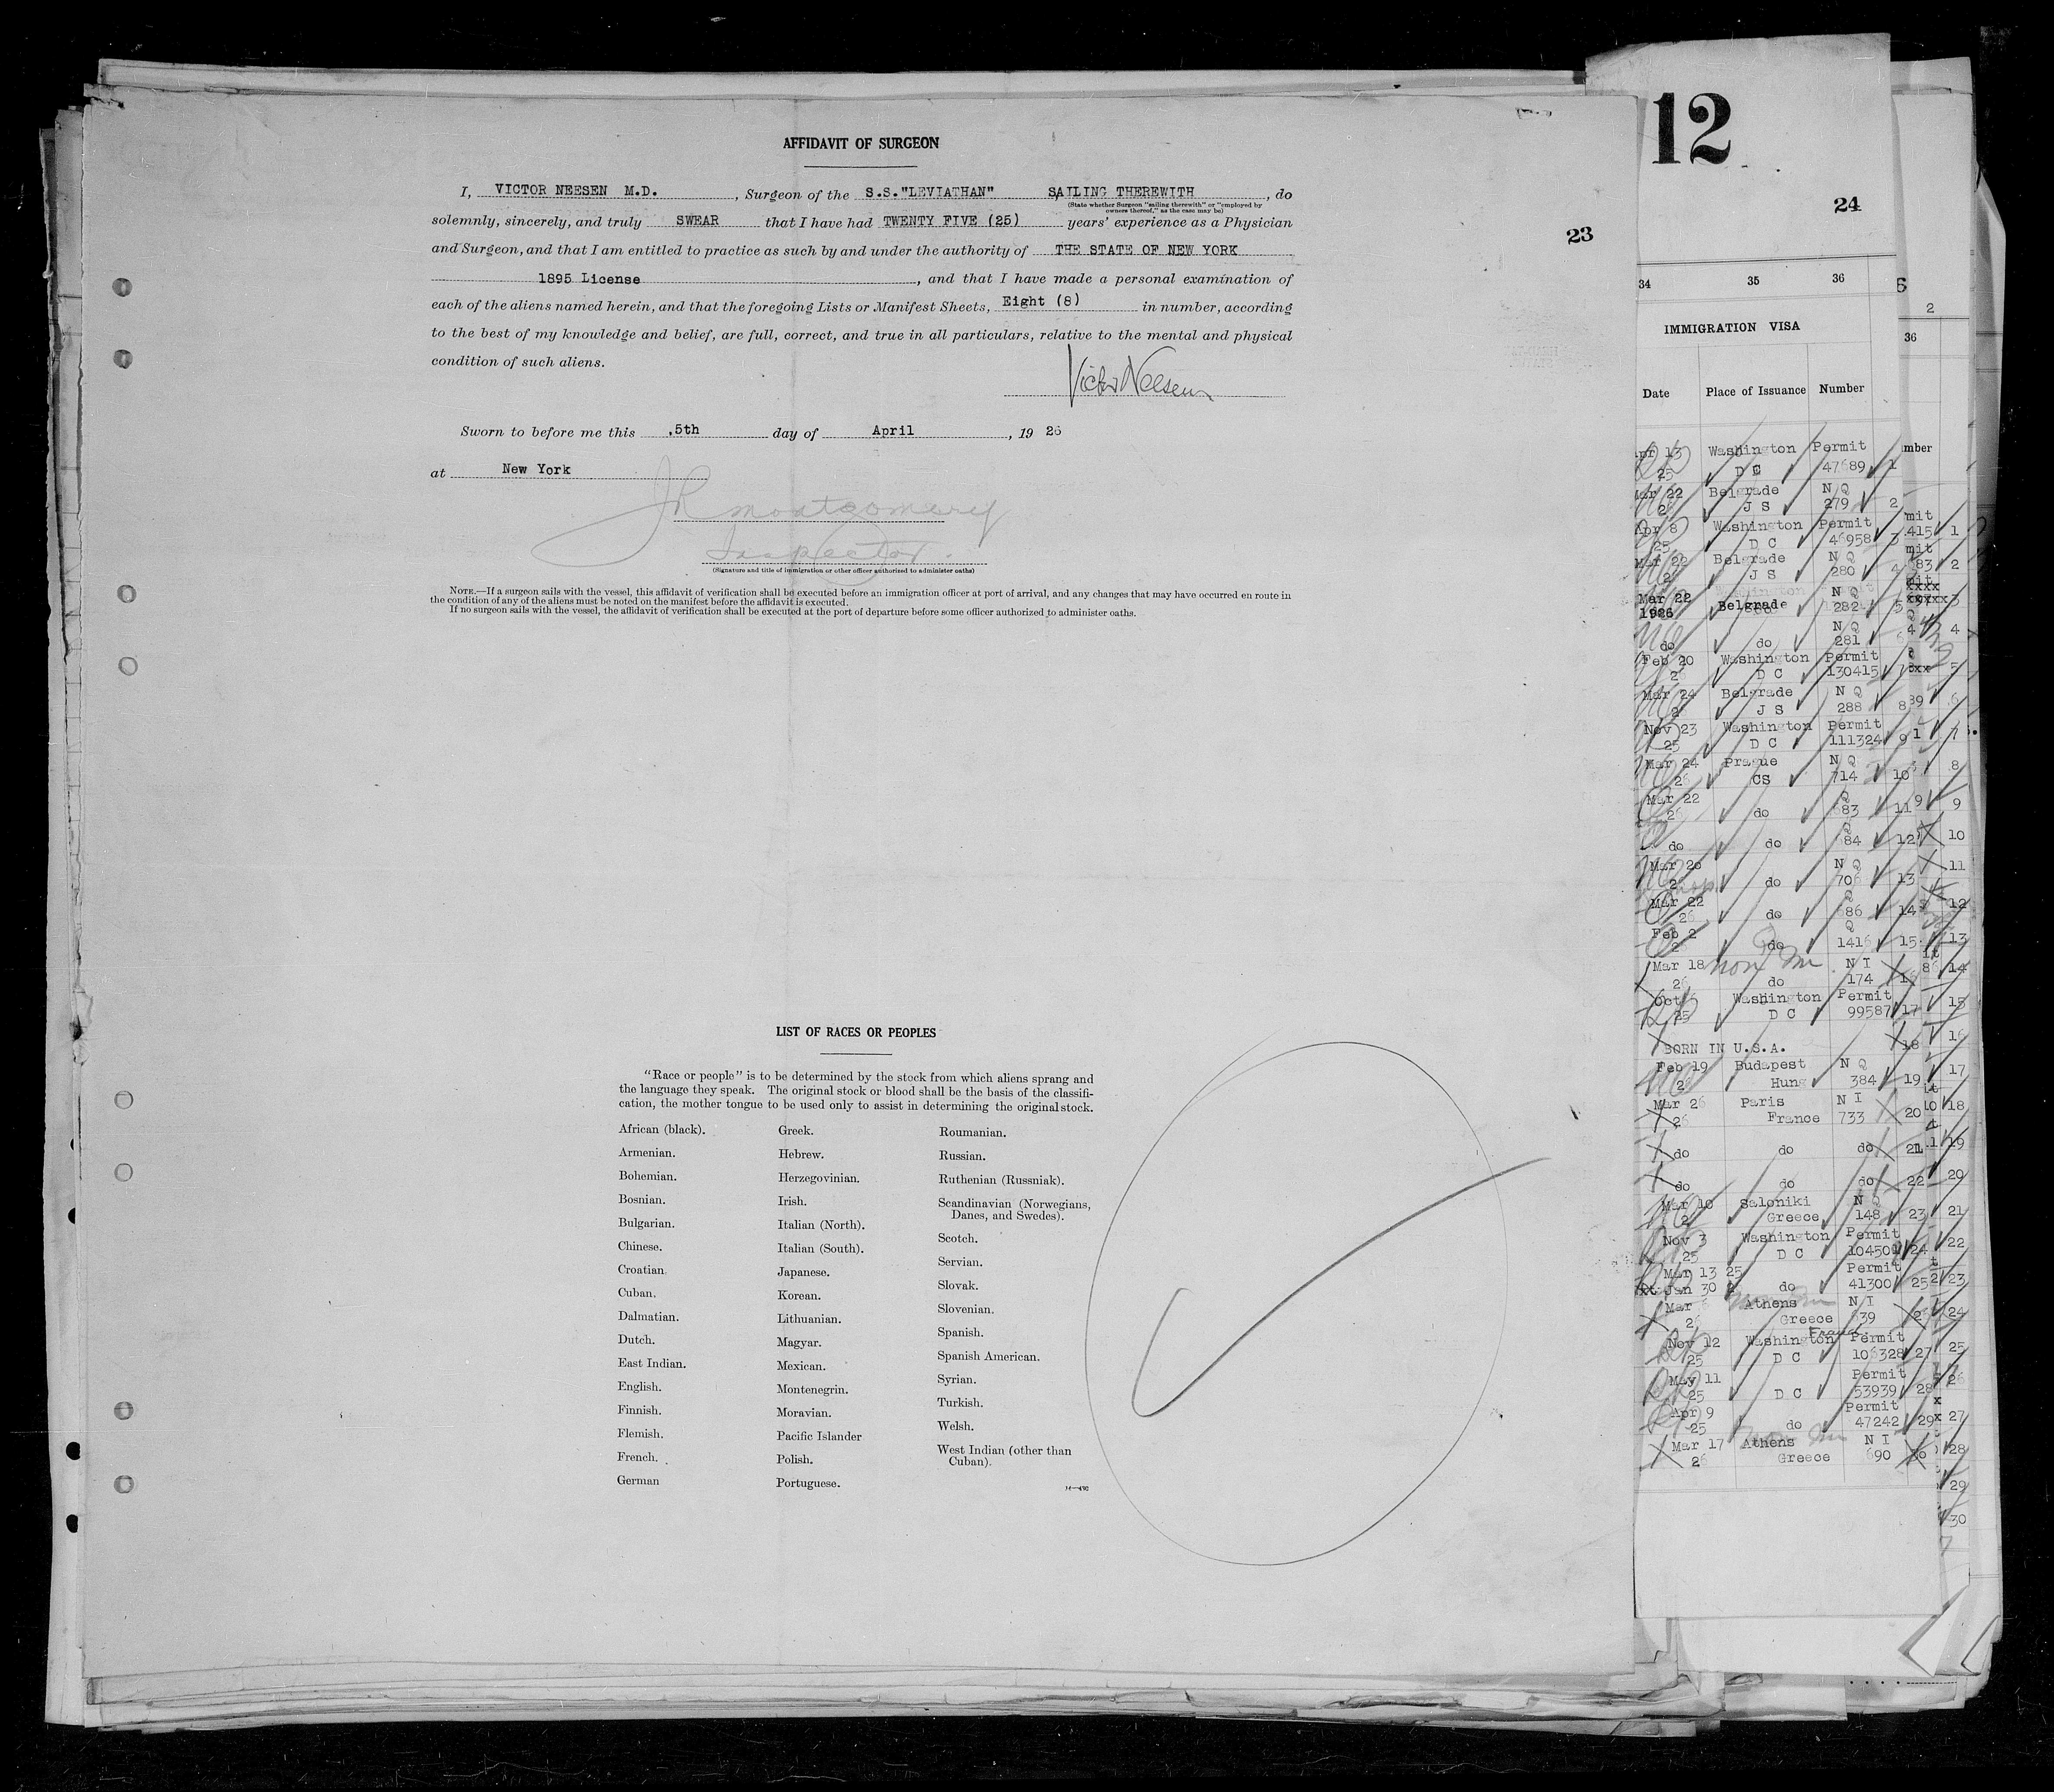 AFFIDAVIT OF SURGEON
I, VICTOR NEESEN M.D. , Surgeon of the S.S."LEVIATHAN" SAILING THEREWITH , do
(State whether Surgeon "sailing therewith" or "employed by
owners thereof," as the case may be)
solemnly, sincerely, and truly SWEAR that I have had TWENTY FIVE (25) years' experience as a Physician
and Surgeon, and that I am entitled to practice as such by and under the authority of THE STATE OF NEW YORK
1895 License , and that I have made a personal examination of
each of the aliens named herein, and that the foregoing Lists or Manifest Sheets, Eight (8) in number, according
to the best of my knowledge and belief, are full, correct, and true in all particulars, relative to the mental and physical
condition of such aliens.
Victor Neesen
Sworn to before me this .5th day of April , 19 26
at New York
JR Montgomery
Inspector.
(Signature and title of immigration or other officer authorized to administer oaths)
NOTE.—If a surgeon sails with the vessel, this affidavit of verification shall be executed before an immigration officer at port of arrival, and any changes that may have occurred en route in
the condition of any of the aliens must be noted on the manifest before the affidavit is executed.
If no surgeon sails with the vessel, the affidavit of verification shall be executed at the port of departure before some officer authorized to administer oaths.
LIST OF RACES OR PEOPLES
"Race or people" is to be determined by the stock from which aliens sprang and
the language they speak. The original stock or blood shall be the basis of the classifi-
cation, the mother tongue to be used only to assist in determining the original stock.
African (black).
Armenian.
Bohemian.
Bosnian.
Bulgarian.
Chinese.
Croatian.
Cuban.
Dalmatian.
Dutch.
East Indian.
English.
Finnish.
Flemish.
French.
German
Greek.
Hebrew.
Herzegovinian.
Irish.
Italian (North).
Italian (South).
Japanese.
Korean.
Lithuanian.
Magyar.
Mexican.
Montenegrin.
Moravian.
Pacific Islander
Polish.
Portuguese.
Roumanian.
Russian.
Ruthenian (Russniak).
Scandinavian (Norwegians,
Danes, and Swedes).
Scotch.
Servian.
Slovak.
Slovenian.
Spanish.
Spanish American.
Syrian.
Turkish.
Welsh.
West Indian (other than
Cuban).
23
12
24
34 35 36
IMMIGRATION VISA
Date Place of Issuance Number
Washington Permit
25 D C 47689 1
Mar 22 Belgrade N Q
J S 279 2
Apr 8 Washington Permit
25 D C 46958 3
Mar 22 Belgrade N Q
J S 280 4
Mar 22 N Q
1926 Belgrade 282 5
N Q
do do 281 6
Feb 20 Washington Permit
D C 130415 7
Mar 24 Belgrade N Q
J S 288 8
Nov 23 Washington Permit
25 D C 111324 9
Mar 24 Prague N Q
26 CS 714 10
Mar 22 Q
26 do 683 11
Q
do do 684 12
Mar 26 N Q
do 706 13
Mar 22 Q
26 do 686 14
Feb 2 Q
do 1416 15
Mar 18 N I
26 do 174
Oct Washington Permit
25 D C 99587 17
BORN IN U.S.A. 18
Feb 19 Budapest N Q
26 Hung 384 19
Mar 26 Paris N I
26 France 733 20
do do do 21
do do do 22
Mar 10 Saloniki N Q
Greece 148 23
Nov 3 Washington Permit
25 D C 104500 24
Mar 13 25 Permit
Jan 30 do 41300 25
Mar 6 Athens N I
26 Greece 639
Nov 12 Washington Permit
25 D C 106328 27
May 11 Permit
25 D C 53939 28
Apr 9 Permit
25 do 47242 29
Mar 17 Athens N I
26 Greece 690 30
2
36
1
2
3
4
5
6
7
8
9
10
11
12
13
14
15
16
17
18
19
20
21
22
23
24
25
26
27
28
29
30